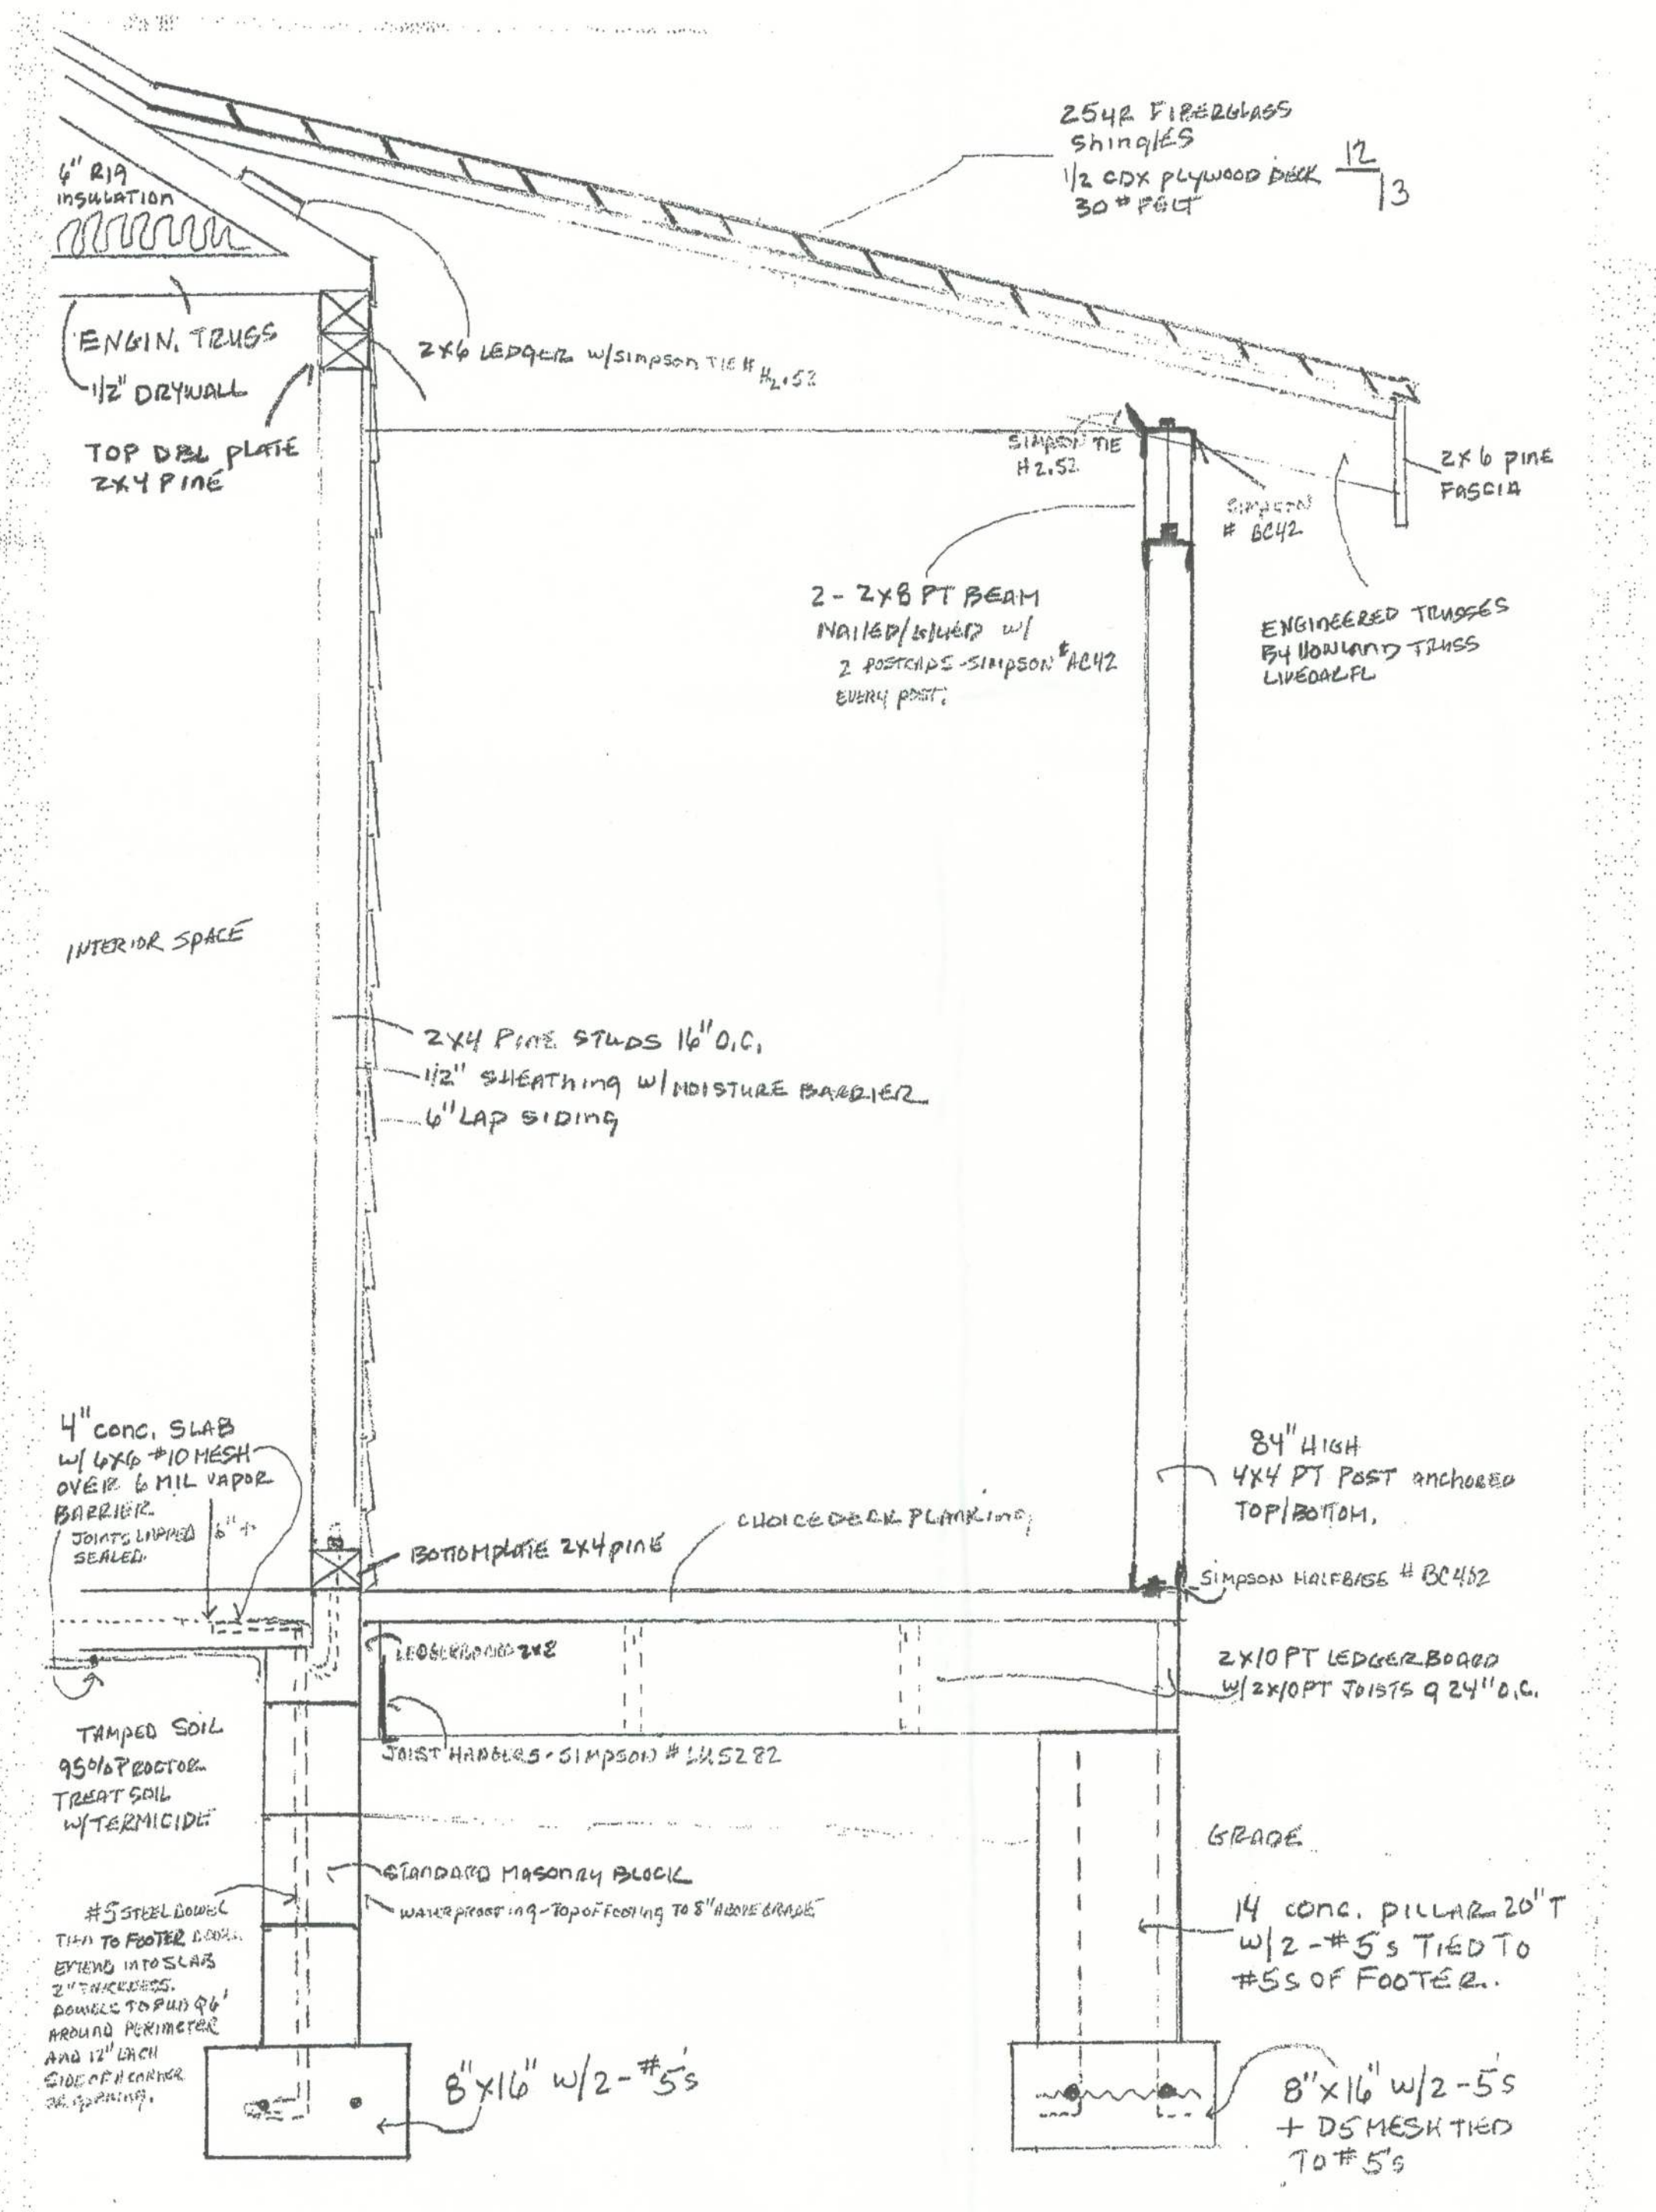 25 YR FIBERGLASS
Shingles
1/2 CDX PLYWOOD DECK
30# FELT
12
3
6" R19
INSULATION
ENGIN. TRUSS
1/2" DRYWALL
TOP DBL PLATE
2X4 PINE
2X6 LEDGER W/SIMPSON TIE #
SIMPSON TIE
SIMPSON
2X6 PINE
FASCIA
2- 2X8 PT BEAM
NAILED/GLUED W/
2 POSTCAPS-SIMPSON #AC42
EVERY POST.
ENGINEERED TRUSSES
BY HOWLAND TRUSS
INTERIOR SPACE
2X4 PINE STUDS 16" O.C.
1/2" SHEATHING W/MOISTURE BARRIER
6" LAP SIDING
4" CONC. SLAB
W/ 6X6 #10 MESH
OVER 6 MIL VAPOR
BARRIER
JOINTS LAPPED
SEALED.
6"+
BOTTOM PLATE 2X4 PINE
CHOICEDECK PLANKING
84" HIGH
4X4 PT POST ANCHORED
TOP/BOTTOM.
SIMPSON HALFBASE #
LEDGERBOARD 2X8
2X10 PT LEDGERBOARD
W/2X10 PT JOISTS @ 24" O.C.
JOIST HANGERS-SIMPSON #
TAMPED SOIL
95% PROCTOR
TREAT SOIL
W/TERMICIDE
GRADE
STANDARD MASONRY BLOCK
WATERPROOFING-TOP OF FOOTING TO 8" ABOVE GRADE
#5 STEEL DOWEL
TIED TO FOOTER
EXTEND INTO SLAB
2" THICKNESS.
AROUND PERIMETER
AND 12" EACH
SIDE OF A CORNER
OR OPENING.
14 CONC. PILLAR 20" T
W/2-#5's TIED TO
#5S OF FOOTER.
8"X16" W/2-#5's
8"X16" W/2-5's
+ D5 MESH TIED
TO #5's